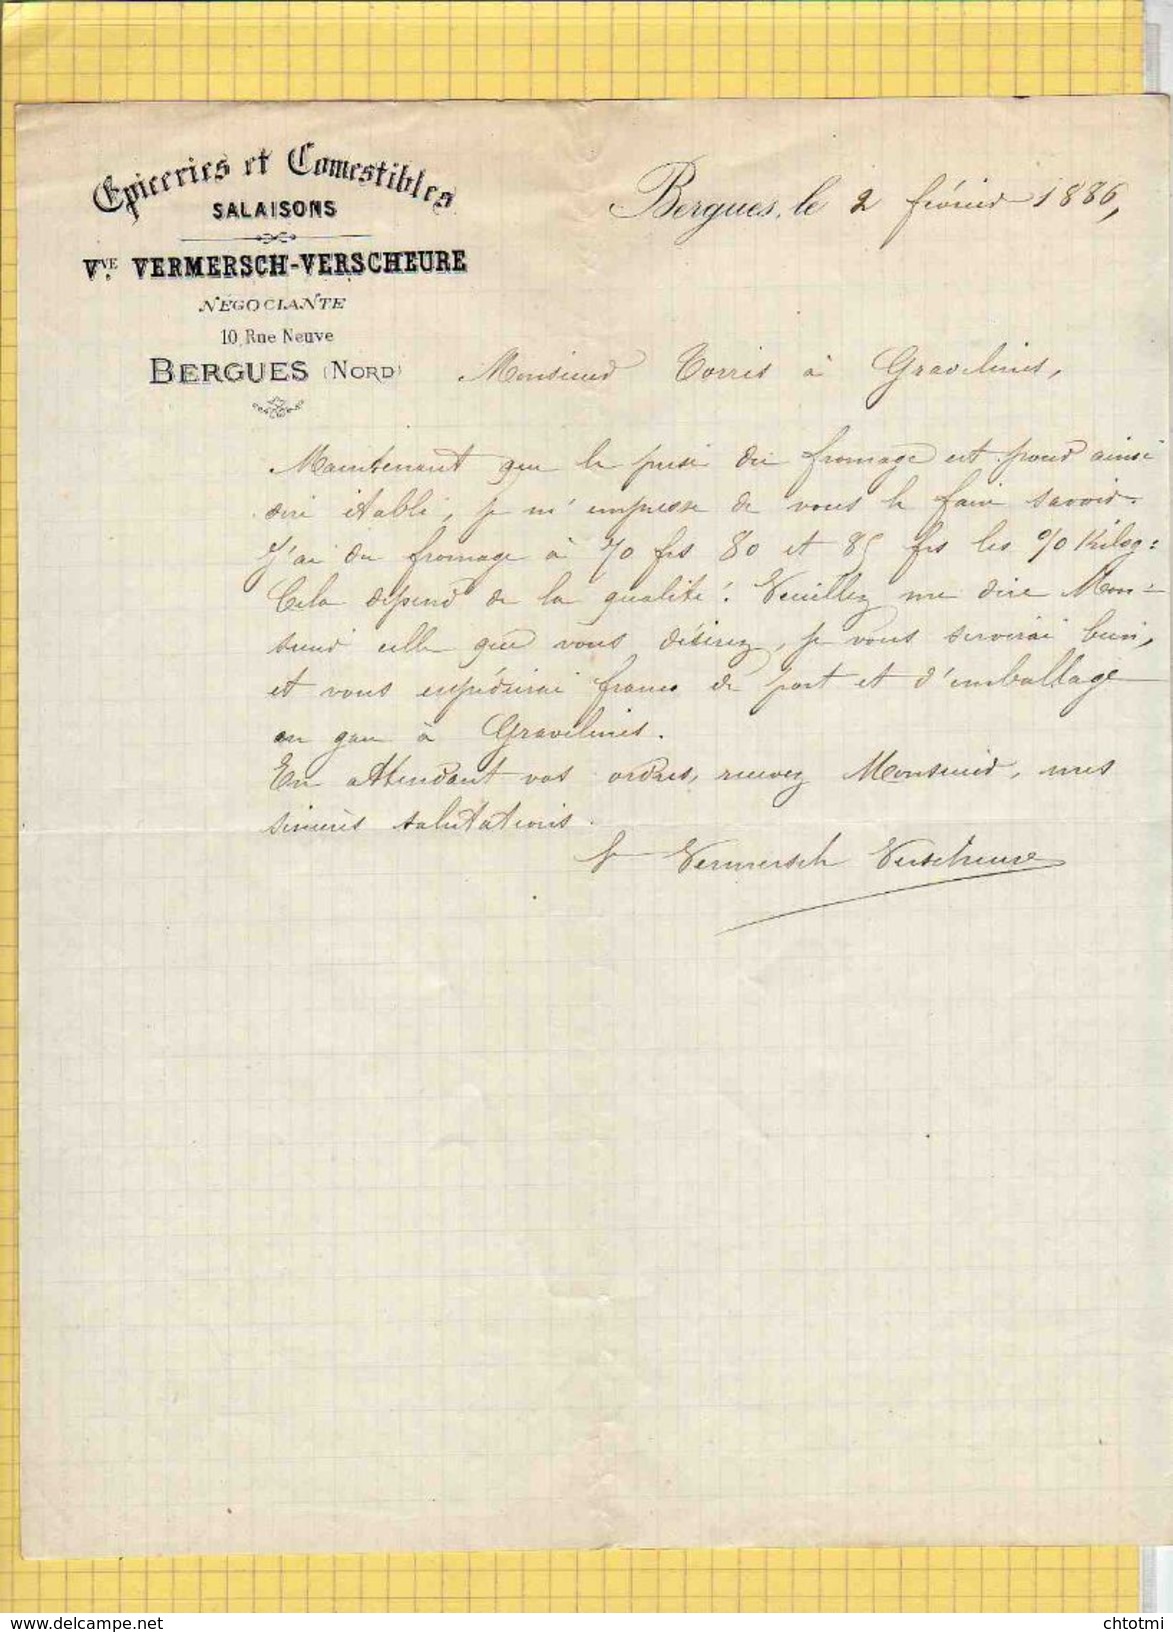 Epiceries et Comestibles
SALAISONS
Vve VERMERSCH-VERSCHEURE
NÉGOCIANTE
10, Rue Neuve
BERGUES (NORD)
Bergues, le 2 février 1886,
Monsieur Torris à Gravelines,
Maintenant que le prix du fromage est pour ainsi
dire établi, je m'empresse de vous le faire savoir.
J'ai du fromage à 70 frs 80 et 85 frs les % Kilog:
Cela dépend de la qualité. Veuillez me dire Mon-
sieur celle que vous désirez, je vous servirai bien,
et vous expédierai franco de port et d'emballage
en gare à Gravelines.
En attendant vos ordres, recevez Monsieur, mes
sincères salutations.
Ve Vermersch Verscheure
www.delcampe.net
chtotmi